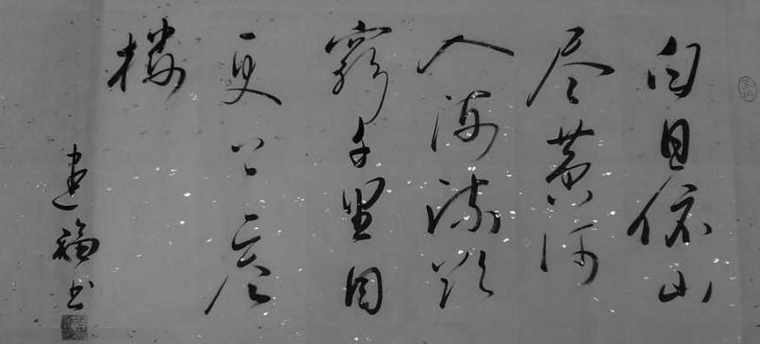 白日依山
尽黄河
入海流欲
窮千里目
更上一层
楼
建福书